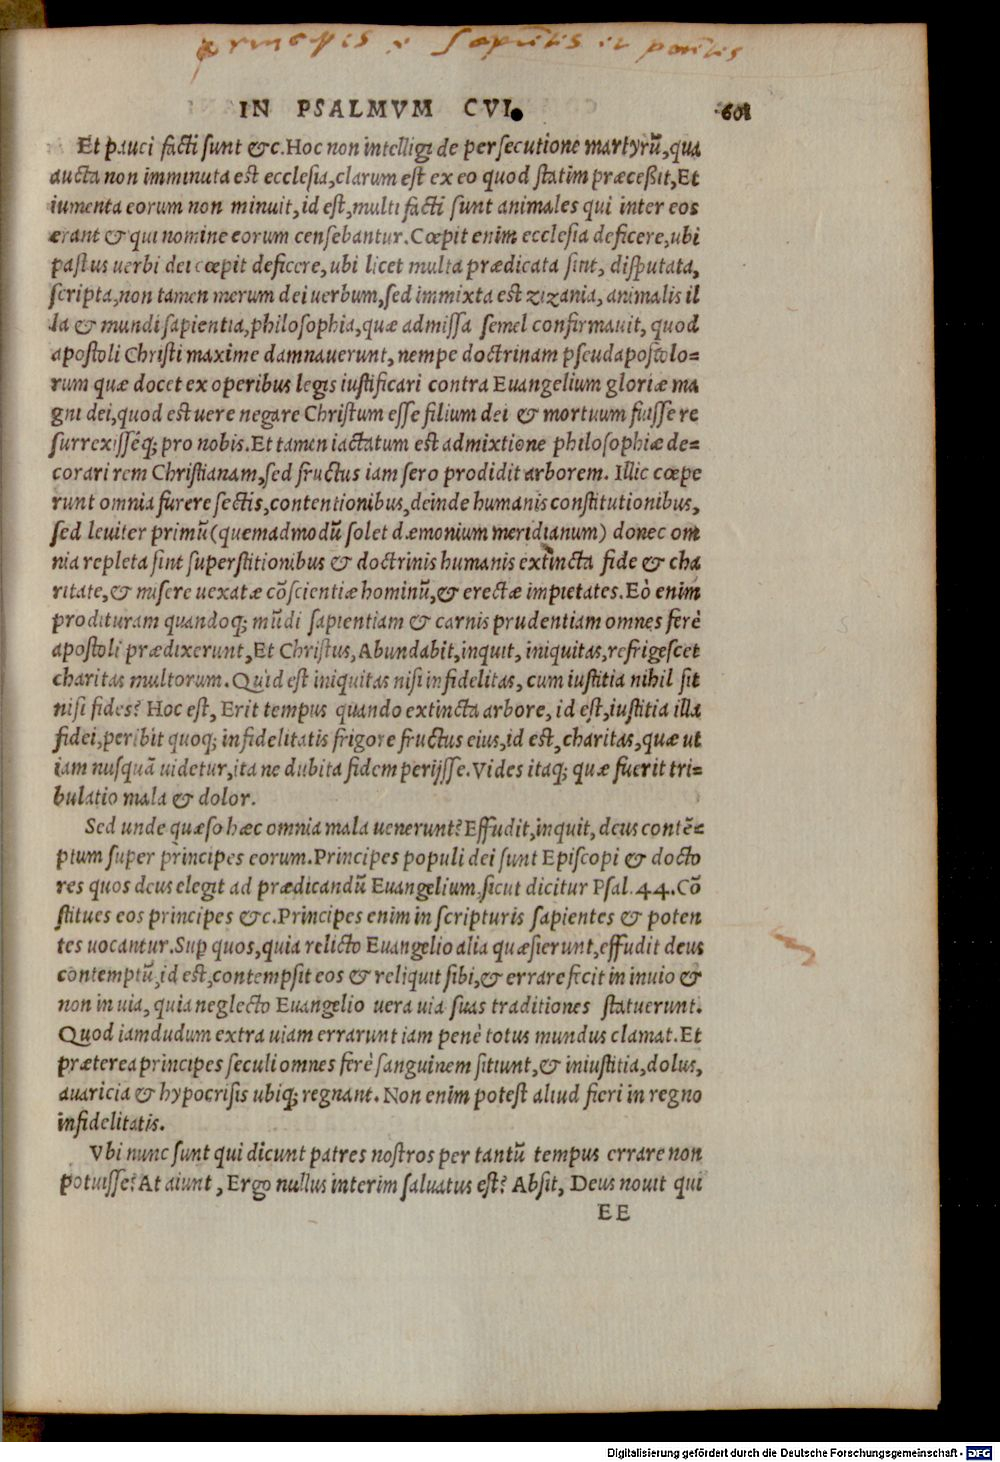 principes i sapientes et potentes
IN PSALMVM CVI. 601
Et pauci facti sunt &c. Hoc non intelligi de persecutione martyrũ, qua
aucta non imminuta est ecclesia, clarum est ex eo quod statim præceßit, Et
iumenta eorum non minuit, id est, multi facti sunt animales qui inter eos
erant & qui nomine eorum censebantur. Cœpit enim ecclesia deficere, ubi
pastus uerbi dei cœpit deficere, ubi licet multa prædicata sint, disputata,
scripta, non tamen merum dei uerbum, sed immixta est zizania, animalis il
la & mundi sapientia, philosophia, quæ admissa semel confirmauit, quod
apostoli Christi maxime damnauerunt, nempe doctrinam pseudapostolo=
rum quæ docet ex operibus legis iustificari contra Euangelium gloriæ ma
gni dei, quod est uere negare Christum esse filium dei & mortuum fuisse re
surrexisséq; pro nobis. Et tamen iactatum est admixtione philosophiæ de=
corari rem Christianam, sed fructus iam sero prodidit arborem. Illic cœpe
runt omnia furere sectis, contentionibus, deinde humanis constitutionibus,
sed leuiter primũ (quemadmodũ solet dæmonium meridianum) donec om
nia repleta sint superstitionibus & doctrinis humanis extincta fide & cha
ritate, & misere uexatæ cõscientiæ hominũ, & erectæ impietates. Eò enim
prodituram quandoq; mũdi sapientiam & carnis prudentiam omnes ferè
apostoli prædixerunt, Et Christus, Abundabit, inquit, iniquitas, refrigescet
charitas multorum. Quid est iniquitas nisi infidelitas, cum iustitia nihil sit
nisi fides? Hoc est, Erit tempus quando extincta arbore, id est, iustitia illa
fidei, peribit quoq; infidelitatis frigore fructus eius, id est, charitas, quæ ut
iam nusquã uidetur, ita ne dubita fidem perijsse. Vides itaq; quæ fuerit tri=
bulatio mala & dolor.
Sed unde quæso hæc omnia mala uenerunt? Effudit, inquit, deus contẽ=
ptum super principes eorum. Principes populi dei sunt Episcopi & docto
res quos deus elegit ad prædicandũ Euangelium, sicut dicitur Psal. 44. Cõ
stitues eos principes &c. Principes enim in scripturis sapientes & poten
tes uocantur. Sup quos, quia relicto Euangelio alia quæsierunt, effudit deus
contemptũ, id est, contempsit eos & reliquit sibi, & errare fecit in inuio &
non in uia, quia neglecto Euangelio uera uia suas traditiones statuerunt.
Quod iamdudum extra uiam errarunt iam penè totus mundus clamat. Et
præterea principes seculi omnes ferè sanguinem sitiunt, & iniustitia, dolus,
auaricia & hypocrisis ubiq; regnant. Non enim potest aliud fieri in regno
infidelitatis.
Vbi nunc sunt qui dicunt patres nostros per tantũ tempus errare non
potuisse? At aiunt, Ergo nullus interim saluatus est? Absit, Deus nouit qui
EE
Digitalisierung gefördert durch die Deutsche Forschungsgemeinschaft - DFG